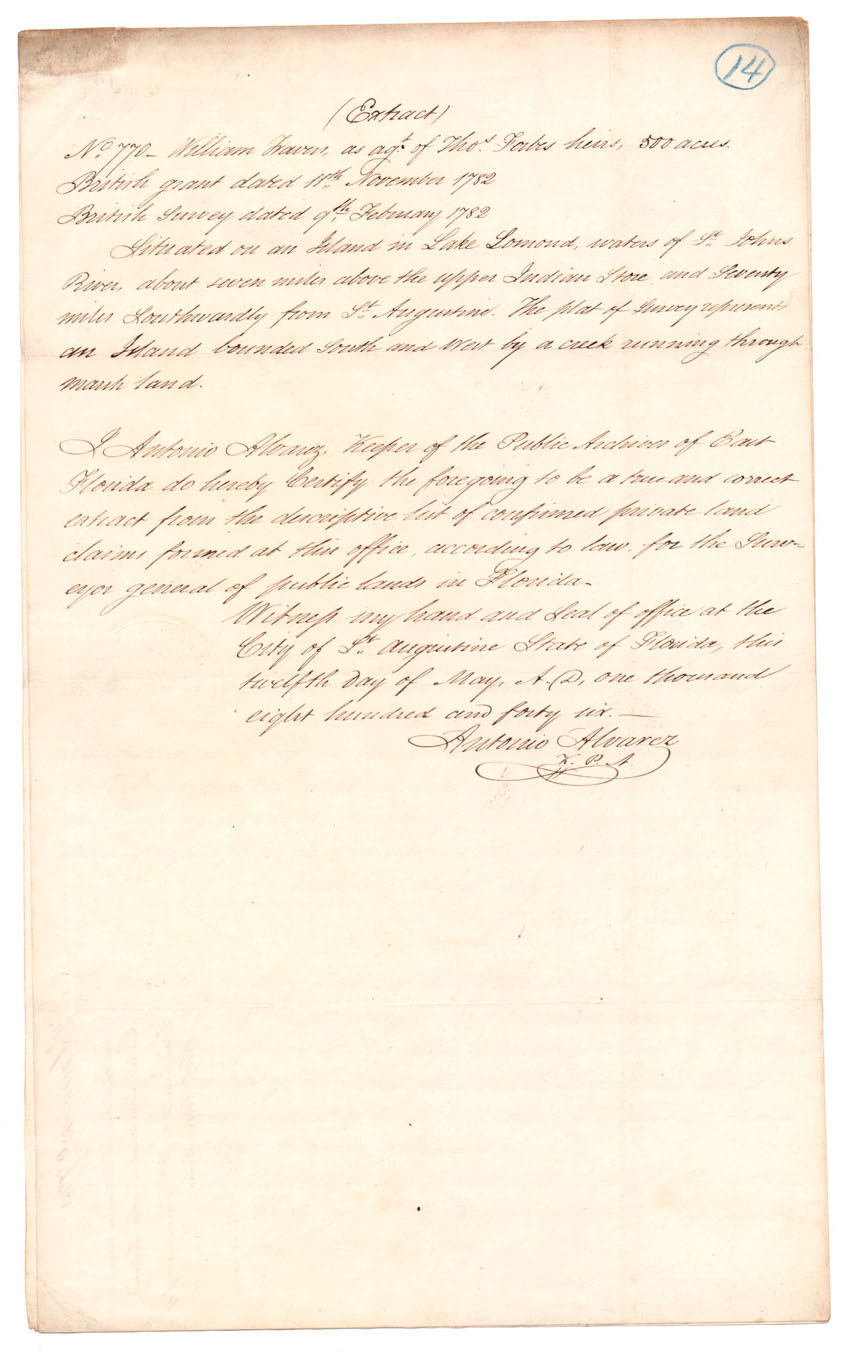 14
(Extract)
No. 770 - William Traven, as agt. of Thos. Forbes heirs, 500 acres.
British grant dated 11th. November 1782
British Survey dated 9th. February 1782
Situated on an Island in Lake Lomond, waters of St. Johns
River, about seven miles above the upper Indian Store and Seventy
miles Southwardly from St. Augustine. The plat of Survey represents
an Island bounded South and West by a creek running through
marsh land.
I Antonio Alvarez, Keeper of the Public Archives of East
Florida do hereby Certify the foregoing to be a true and correct
extract from the descriptive list of confirmed private land
claims formed at this office, according to law, for the Surv-
eyor general of public lands in Florida.
Witness my hand and Seal of office at the
City of St. Augustine State of Florida, this
twelfth Day of May, A.D, one thousand
eight hundred and forty six.—
Antonio Alvarez
K. P. A.